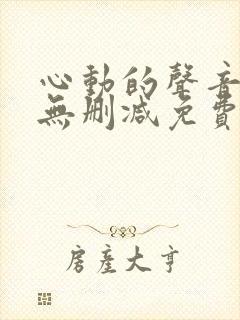 心動的聲音
無刪減免費
房產大亨